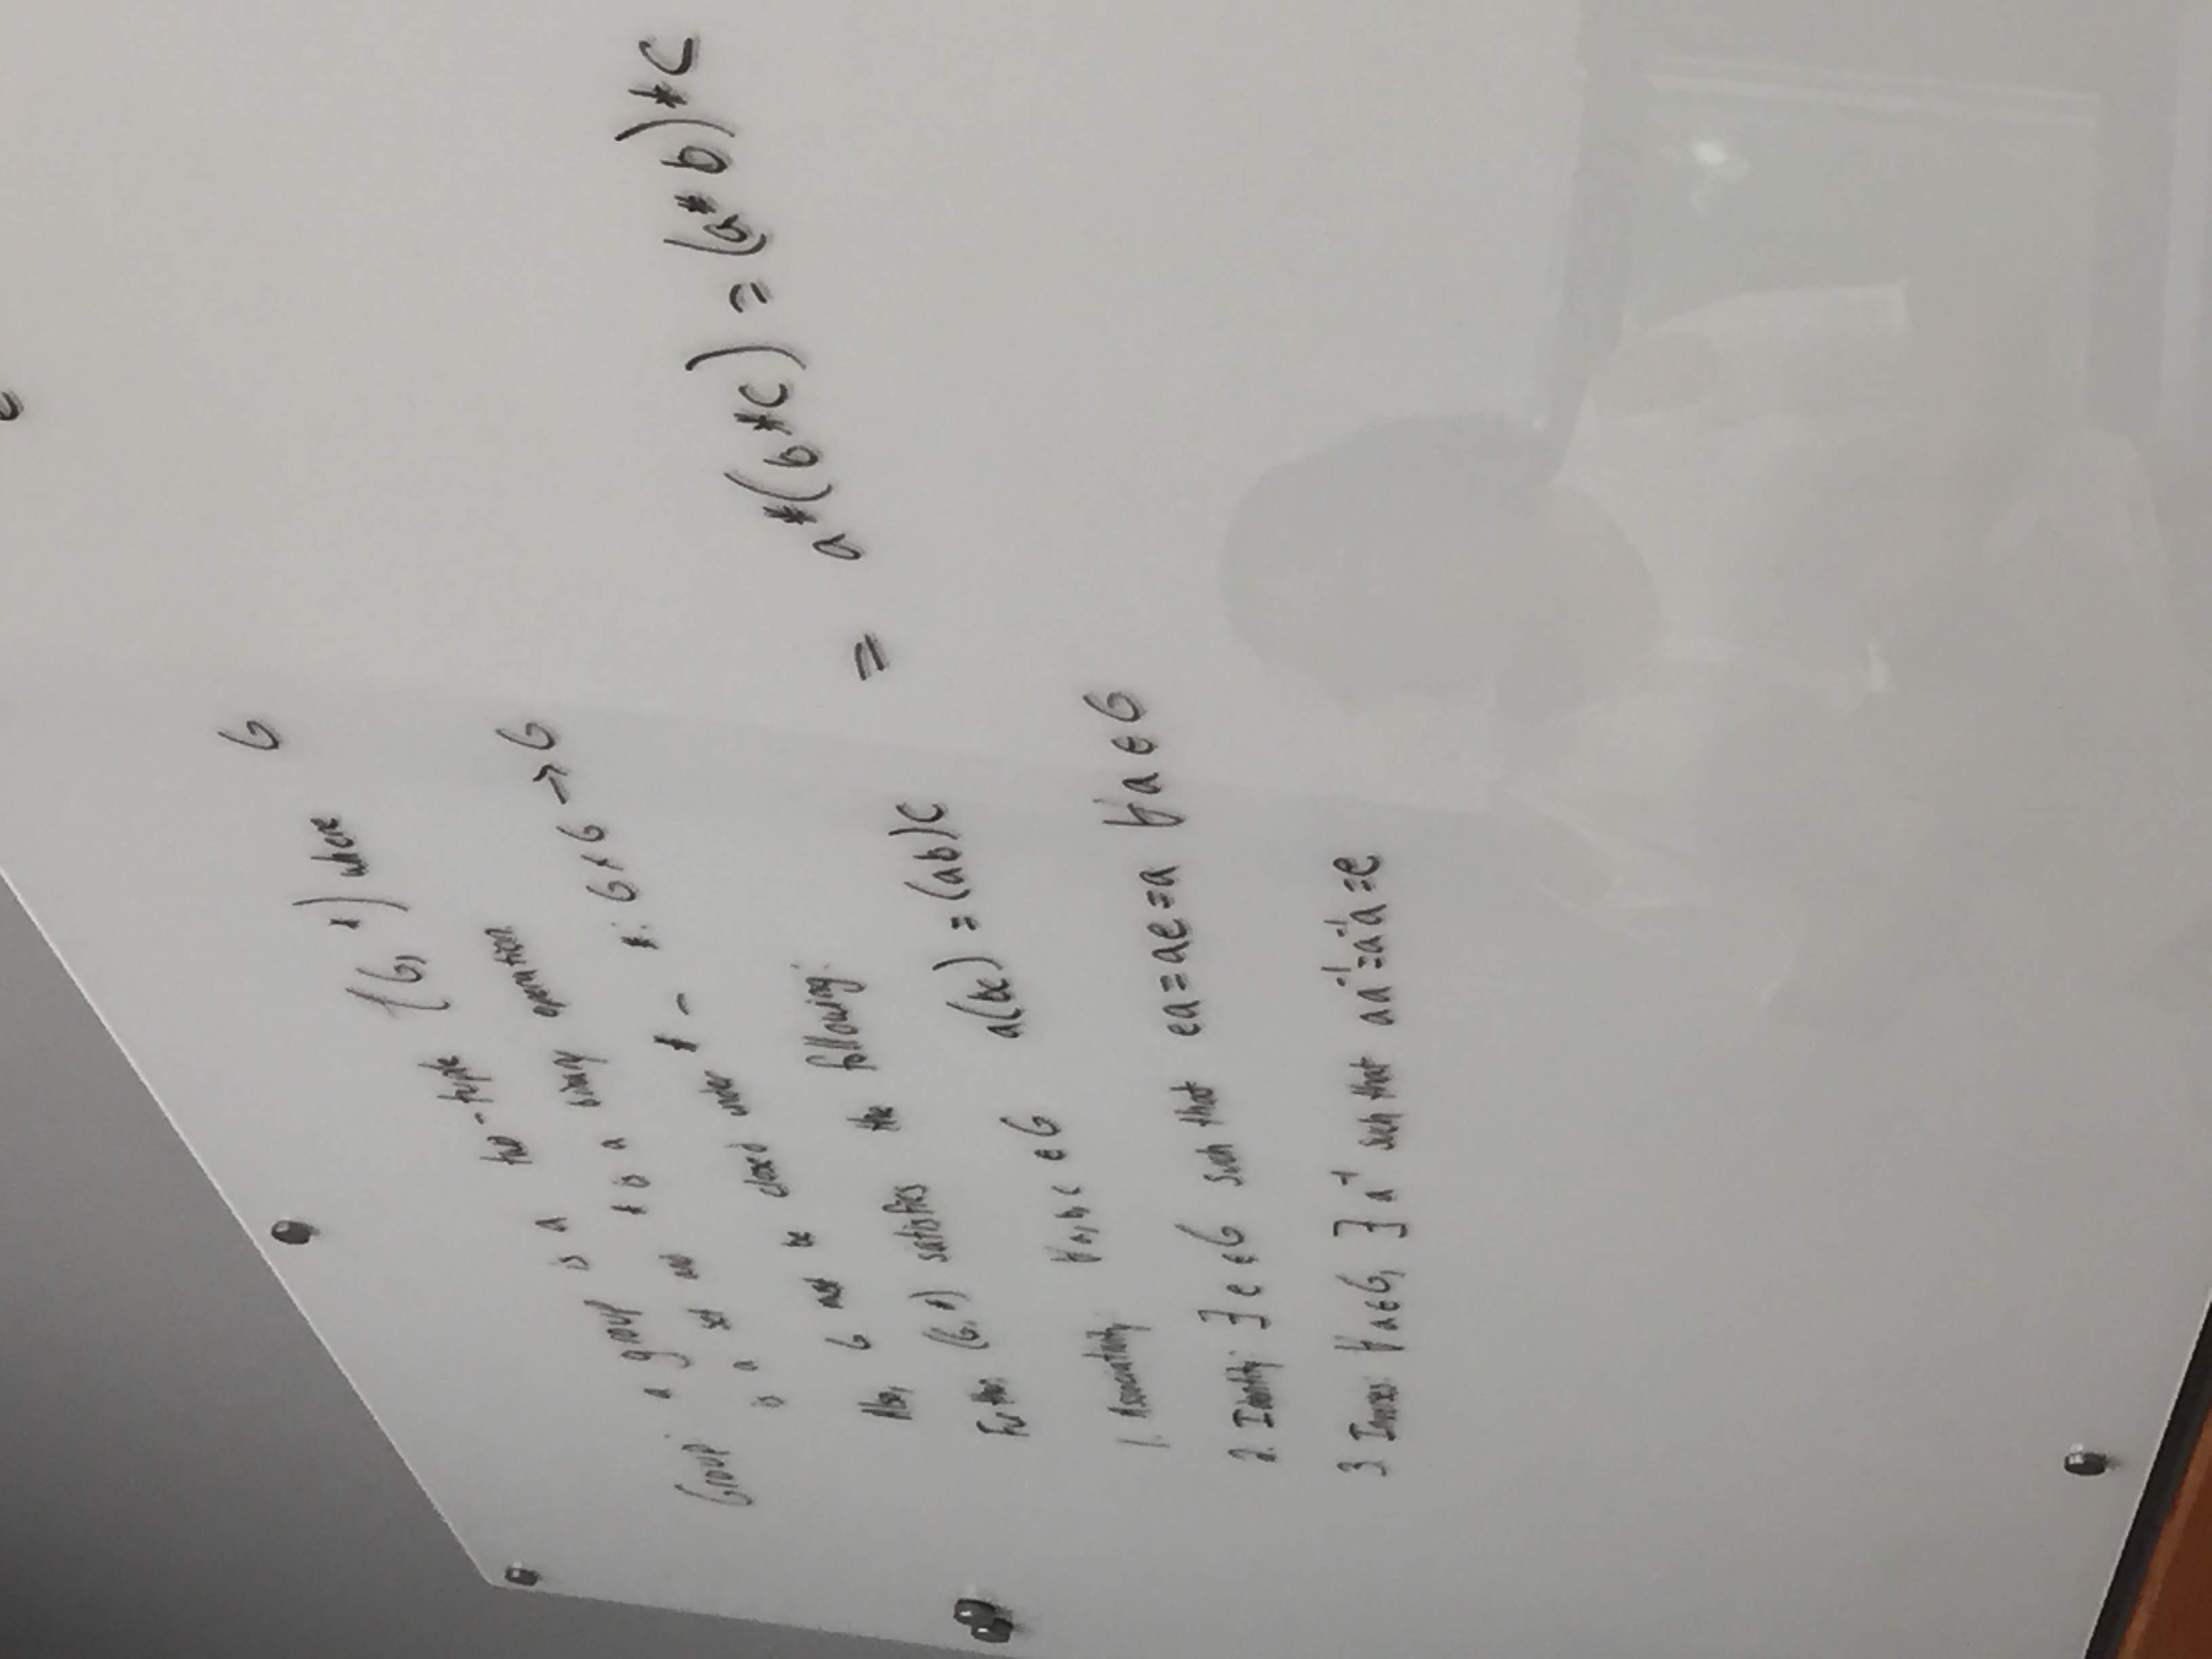 Group: a group is a two-tuple (G, *) where G
is a set and * is a binary operation.
Also, G must be closed under * - *: G × G → G
Further (G, *) satisfies the following:
1. Associativity: ∀ a, b, c ∈ G a(bc) = (ab)c = a*(b*c) = (a*b)*c
2. Identity: ∃ e ∈ G such that ea = ae = a ∀ a ∈ G
3. Inverses: ∀ a ∈ G, ∃ a⁻¹ such that aa⁻¹ = a⁻¹a = e